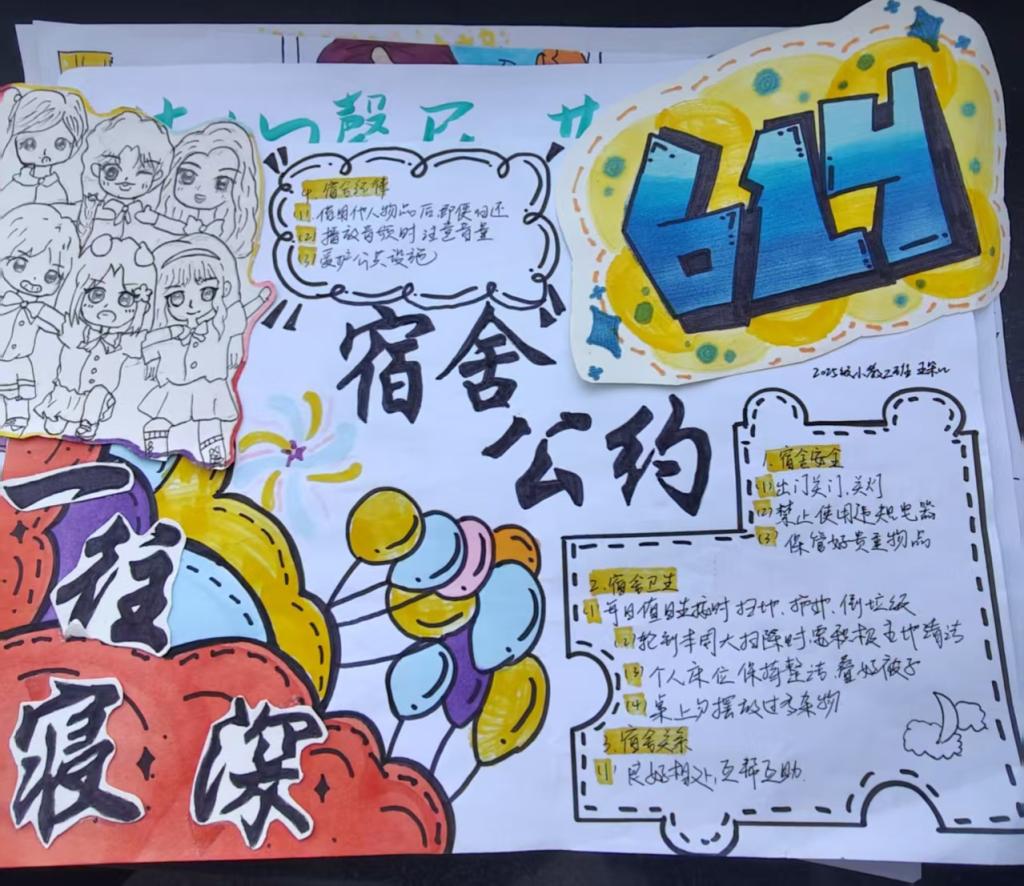 614
4. 宿舍纪律
(1) 借用他人物品后即使归还
(2) 播放音频时注意音量
(3) 爱护公共设施
宿舍
公约
2025级小教2班
1. 宿舍安全
(1) 出门关门、关灯
(2) 禁止使用违规电器
(3) 保管好贵重物品
2. 宿舍卫生
(1) 每日值日生按时扫地、拖地、倒垃圾
(2) 轮到本周大扫除时需积极主动清洁
(3) 个人床位保持整洁,叠好被子
(4) 桌上勿摆放过多杂物
3. 宿舍关系
(1) 良好相处,互帮互助.
一往
寝深